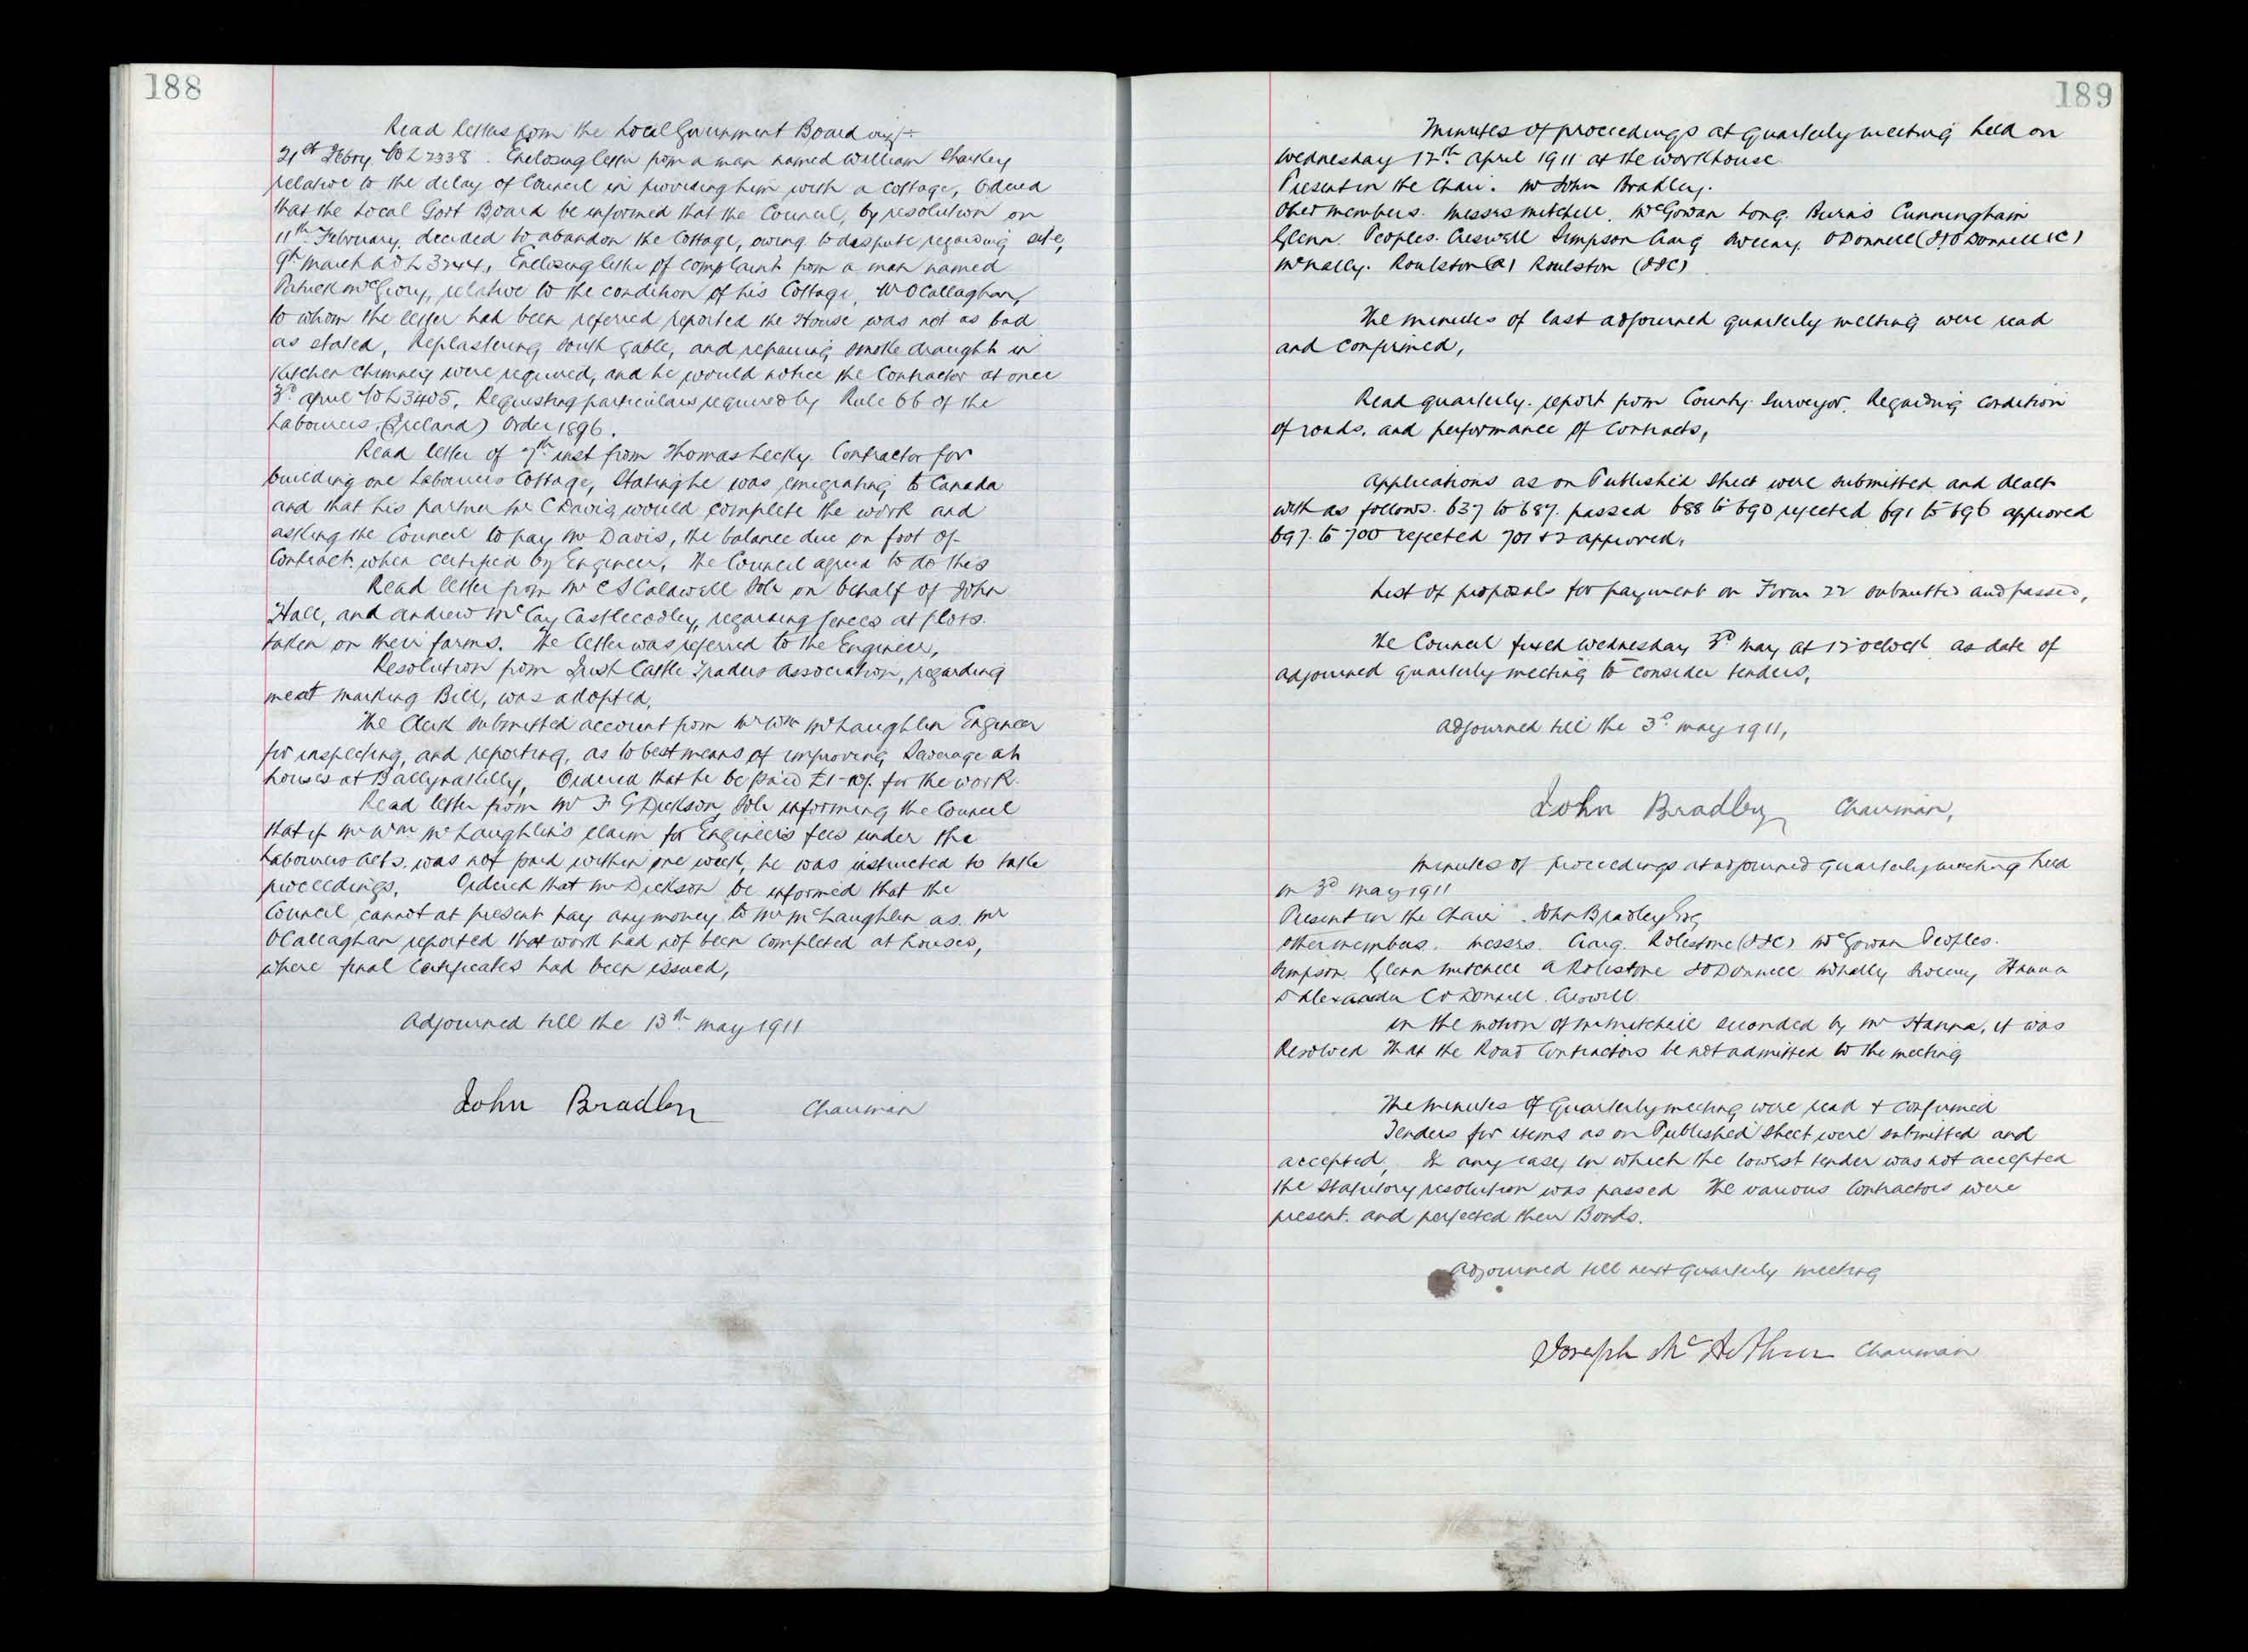 188
Read letters from the Local Government Board viz:-
21st Febry No L 2338. Enclosing letter from a man named William Sharkey
relative to the delay of Council in providing him with a cottage, Ordered
that the Local Govt Board be informed that the Council, by resolution on
11th February, decided to abandon the Cottage, owing to dispute regarding site,
9th March No L 3244, Enclosing letter of complaint from a man named
Patrick McGrory, relative to the condition of his Cottage, Mr OCallaghan,
to whom the letter had been referred reported the House was not as bad
as stated, Replastering South gable, and repairing smoke draught in
Kitchen Chimney were required, and he would notice the Contractor at once
3rd April No L 3405, Requesting particulars required by Rule 66 of the
Labourers (Ireland) Order 1896.
Read letter of 7th inst from Thomas Lecky Contractor for
building one Labourers Cottage, Stating he was emigrating to Canada
and that his partner Mr C Davis would complete the work and
asking the Council to pay Mr Davis, the balance due on foot of
Contract when certified by Engineer, The Council agreed to do this
Read letter from Mr C S Caldwell Solr on behalf of John
Hall, and Andrew McCay Castlecooley, regarding fences at plots
taken on their farms. The letter was referred to the Engineer,
Resolution from Irish Cattle Traders Association, regarding
meat marking Bill, was adopted,
The Clerk submitted account from Mr Wm McLaughlin Engineer
for inspecting, and reporting, as to best means of improving Sewerage at
houses at Ballynakelly, Ordered that he be paid £1-10/. for the work.
Read letter from Mr F G Dickson Solr informing the Council
that if Mr Wm McLaughlin's claim for Engineers fees under the
Labourers Acts was not paid within one week, he was instructed to take
proceedings, Ordered that Mr Dickson be informed that the
Council cannot at present pay any money to Mr McLaughlin as Mr
OCallaghan reported that work had not been completed at houses,
where final Certificates had been issued,
Adjourned till the 13th May 1911
John Bradley Chairman
189
Minutes of proceedings at quarterly meeting held on
Wednesday 12th April 1911 at the workhouse
Present in the Chair. Mr John Bradley.
Other members. Messrs Mitchell, McGowan Long. Burns Cunningham
Glenn. Peoples. Creswell Simpson Craig Sweeny ODonnell (J) ODonnell (C)
McNally. Roulston (A) Roulston (JJC)
The minutes of last adjourned quarterly meeting were read
and confirmed,
Read quarterly report from County Surveyor. Regarding condition
of roads, and performance of Contracts,
Applications as on Published Sheet were submitted and dealt
with as follows. 637 to 687. passed 688 to 690 rejected 691 to 696 approved
697. to 700 rejected 701 + 2 approved.
List of proposals for payment on Form 22 submitted and passed,
The Council fixed Wednesday 3rd May at 12 oclock as date of
adjourned quarterly meeting to consider tenders,
Adjourned till the 3rd May 1911,
John Bradley Chairman,
Minutes of proceedings at adjourned quarterly meeting held
on 3rd May 1911
Present in the Chair. John Bradley Esq
Other members. Messrs. Craig. Rolestone (JJC) McGowan Peoples.
Simpson Glenn Mitchell A Rolestone J ODonnell McNally Sweeny Hanna
D Alexander C ODonnell. Creswell
On the motion of Mr Mitchell seconded by Mr Hanna, it was
Resolved That the Road Contractors be not admitted to the meeting
The minutes of Quarterly meeting were read + confirmed
Tenders for items as on Published Sheet were submitted and
accepted, In any case, in which the lowest tender was not accepted
the Statutory resolution was passed The various Contractors were
present. and perfected their Bonds.
Adjourned till next quarterly meeting
Joseph McArthur Chairman